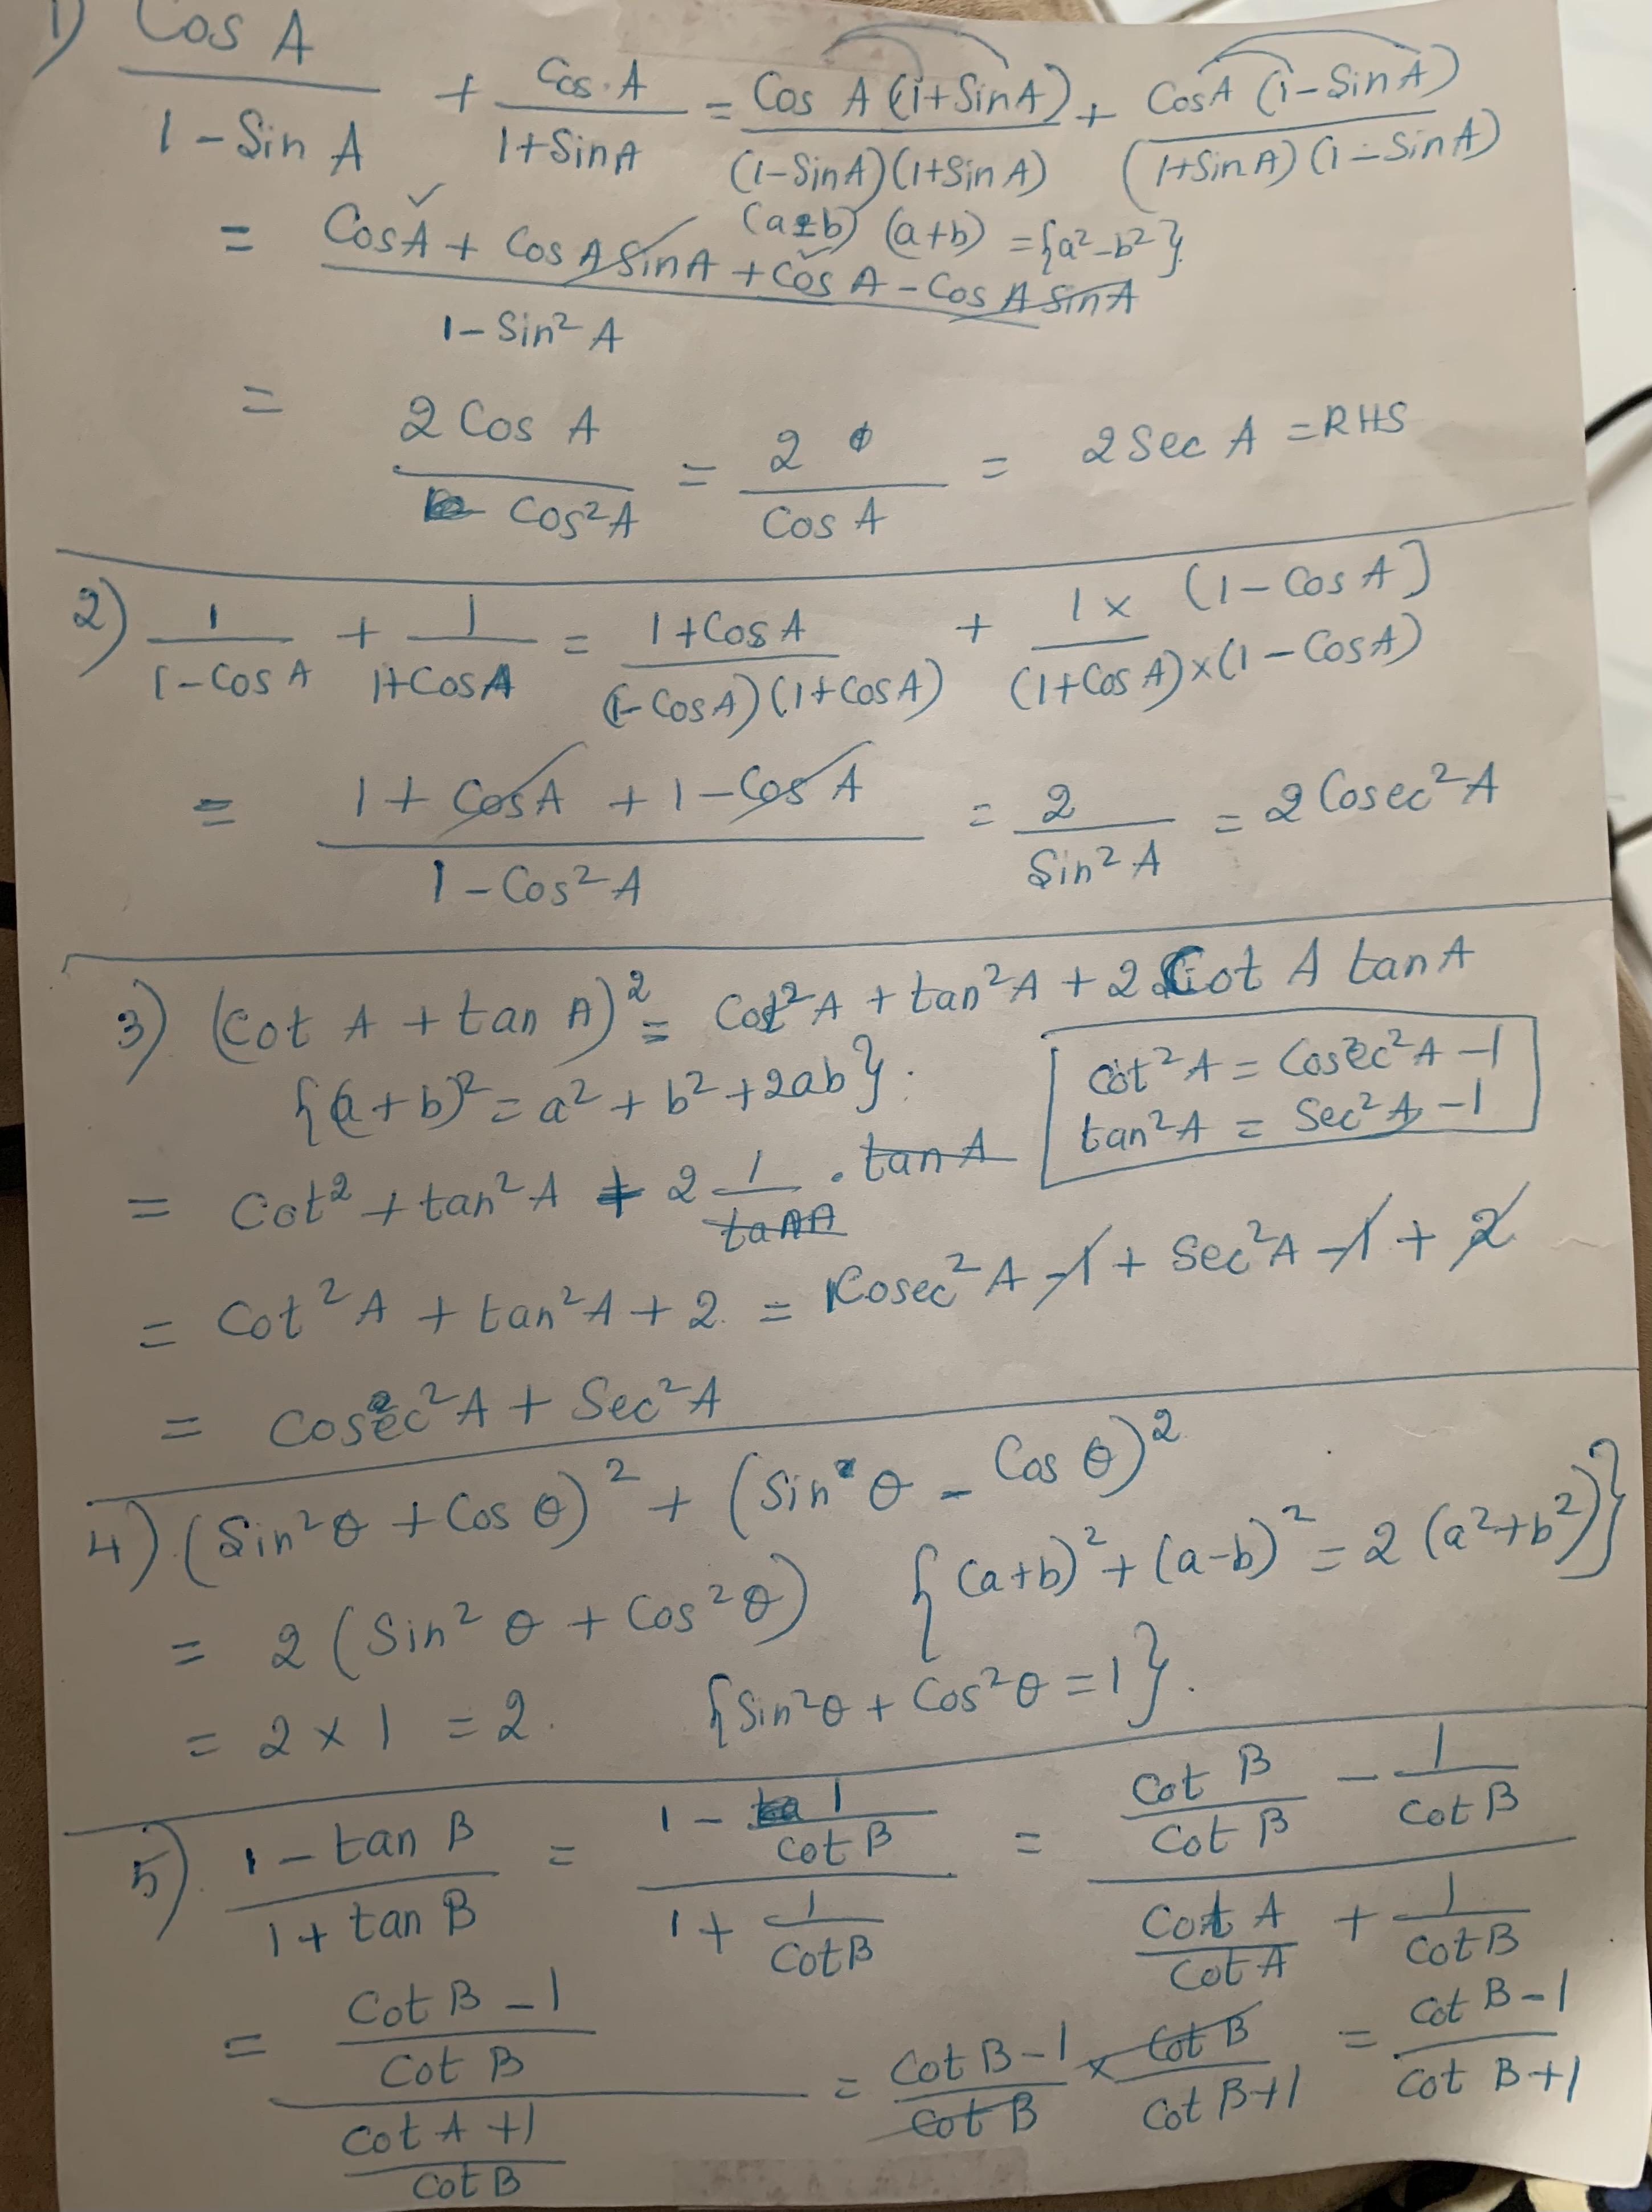 1) Cos A / 1 - Sin A + Cos A / 1+SinA = Cos A (1+SinA) / (1-SinA)(1+SinA) + CosA (1-SinA) / (1+SinA)(1-SinA)
(a-b) (a+b) = {a²-b²}
= CosA + CosA SinA + Cos A - Cos A SinA / 1 - Sin² A
= 2 Cos A / Cos²A = 2 / Cos A = 2 Sec A = RHS
2) 1 / 1-Cos A + 1 / 1+CosA = 1+CosA / (1-CosA)(1+CosA) + 1 × (1-Cos A) / (1+Cos A)×(1-CosA)
= 1 + CosA + 1 - Cos A / 1 - Cos² A = 2 / Sin² A = 2 Cosec² A
3) (Cot A + tan A)² = Cot² A + tan² A + 2 Cot A tan A
{(a+b)² = a² + b² + 2ab}.
cot² A = Cosec² A - 1
tan² A = Sec² A - 1
= Cot² + tan² A + 2 1 / tanA . tan A
= Cot² A + tan² A + 2 = Cosec² A - 1 + Sec² A - 1 + 2
= Cosec² A + Sec² A
4) (Sin² θ + Cos θ)² + (Sin θ - Cos θ)²
= 2 (Sin² θ + Cos² θ) {(a+b)² + (a-b)² = 2 (a²+b²)}
= 2 × 1 = 2. {Sin²θ + Cos²θ = 1}.
5) 1 - tan B / 1 + tan B = 1 - 1 / cot B / 1 + 1 / Cot B = Cot B / Cot B - 1 / Cot B / Cot A / Cot A + 1 / cot B
= Cot B - 1 / Cot B / Cot A + 1 / cot B = Cot B - 1 / Cot B × Cot B / Cot B+1 = cot B - 1 / cot B + 1